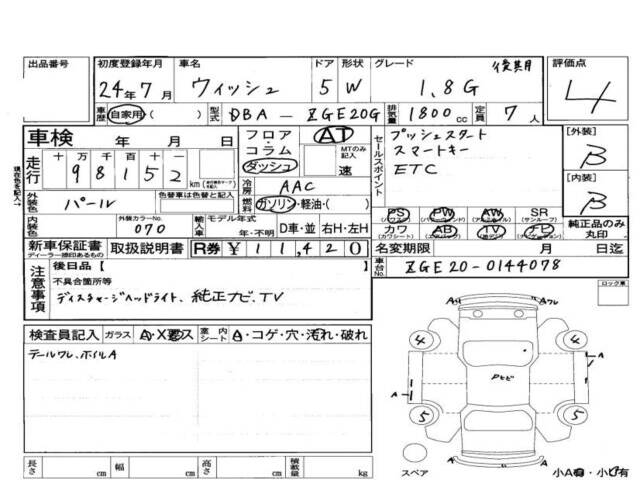 出品番号 初度登録年月 車名 ドア 形状 グレード 後期 評価点
24年7月 ウィッシュ 5 W 1.8G 4
車歴 自家用( ) 型式 DBA - ZGE20G 排気量 1800cc 定員 7人
車検 年 月 日 フロア・コラム ダッシュ AT MTのみ記入 速
セールスポイント プッシュスタート
スマートキー
ETC
[外装] B
[内装] B
現在色を記入→
走行 十 万 千 百 十 一
98152 km
冷房 AAC
外装色 パール 色替車は色替と記入 燃料 ガソリン・軽油・( )
内装色 外装カラーNo. 070 輸入車 モデル年式 年・不明 D車・並 右H・左H
PS PW AW SR
(パワステ) (パワーウィンド) (アルミホイル) (サンルーフ)
カワ AB TV ナビ 純正品のみ丸印
(カワシート) (エアバック) (テレビ) (ナビゲーション)
新車保証書 取扱説明書 R券 ¥11,420 名変期限 月 日迄
ディーラー捺印あるもの
車台No. ZGE20-0144078
注意事項 後日品【
不具合箇所等
ディスチャージヘッドライト、純正ナビ、TV
ロック栗
検査員記入 ガラス A・X要ス 室内シート A・コゲ・穴・汚れ・破れ
テールワレ、ホイルA
A Aワレ
4 4
A A
Pヒビ
5 5
スペア 小A有・小U有
長さ cm 幅 cm 高さ cm 積載量 kg